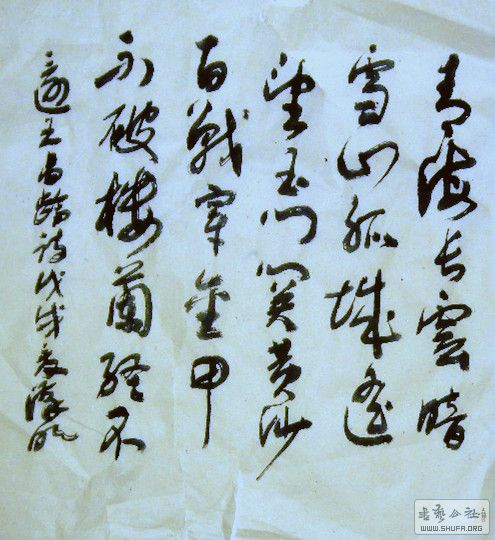 青海长雲暗
雪山孤城遥
望玉门关黄沙
百戰穿金甲
不破樓蘭终不
還王昌龄诗戊戌
书艺公社
WWW.SHUFA.ORG